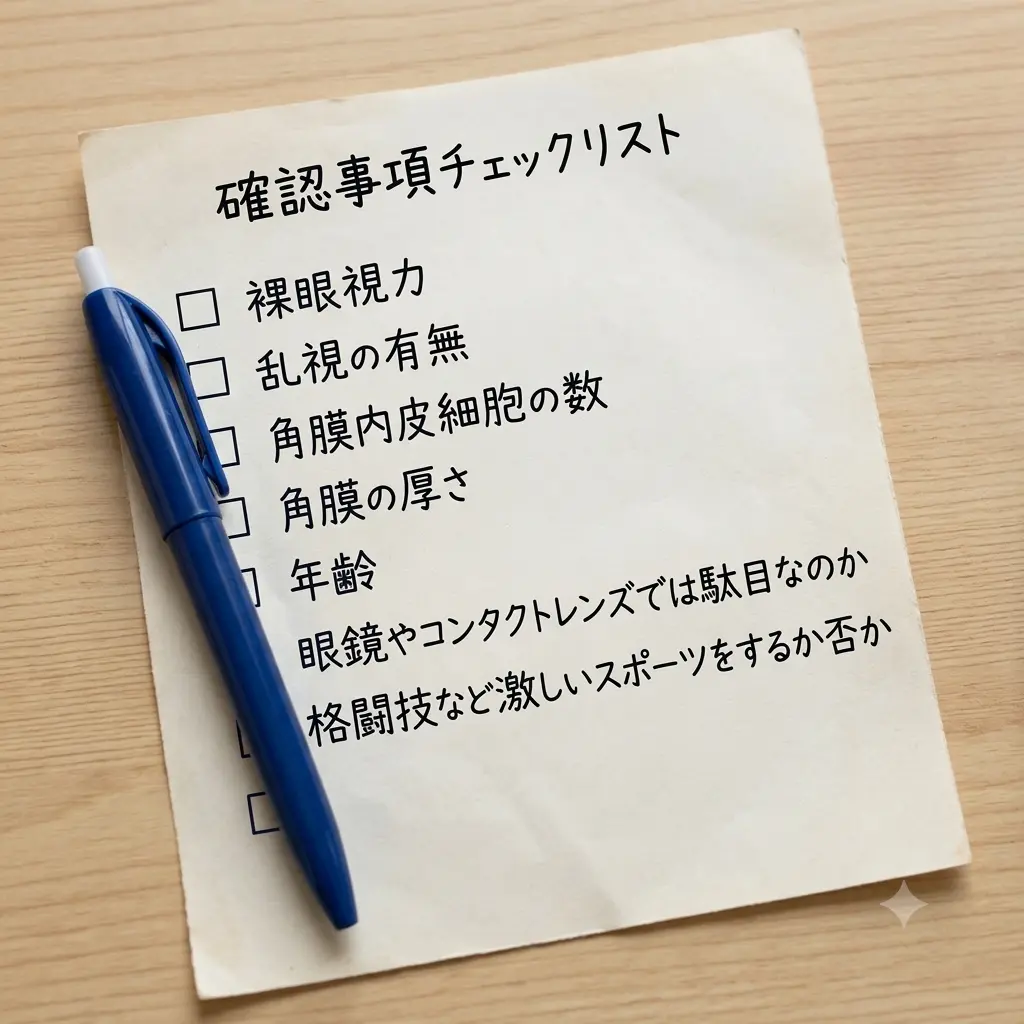 確認事項チェックリスト
□ 裸眼視力
□ 乱視の有無
□ 角膜内皮細胞の数
□ 角膜の厚さ
□ 年齢
眼鏡やコンタクトレンズでは駄目なのか
□ 格闘技など激しいスポーツをするか否か
□